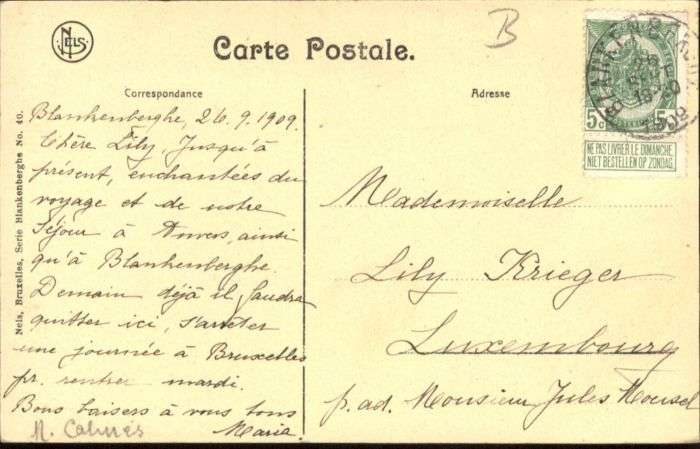 NELS
B
Carte Postale.
Correspondance
Adresse
Blankenberghe, 26.9.1909.
Chère Lily, Jusqu'à
présent, enchantées du
voyage et de notre
Séjour à Anvers, ainsi
qu'à Blankenberghe.
Demain déjà il faudra
quitter ici, s'arrêter
une journée à Bruxelles
pr. rentrer mardi.
Bons baisers à vous tous
Maria.
Mademoiselle
Lily Krieger
Luxembourg
p. ad. Monsieur Jules Mousel
Nels, Bruxelles, Serie Blankenberghe No. 40.
BLANKENBERGHE
1909
5c 5c
NE PAS LIVRER LE DIMANCHE
NIET BESTELLEN OP ZONDAG